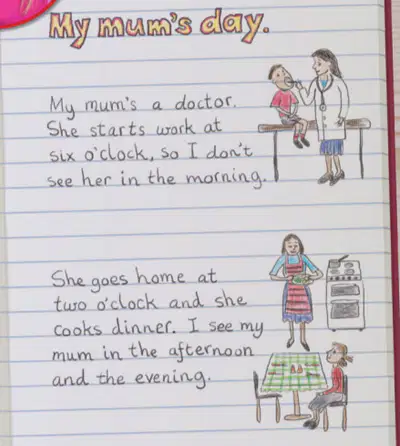 My mum's day.
My mum's a doctor.
She starts work at
six o'clock, so I don't
see her in the morning.
She goes home at
two o'clock and she
cooks dinner. I see my
mum in the afternoon
and the evening.